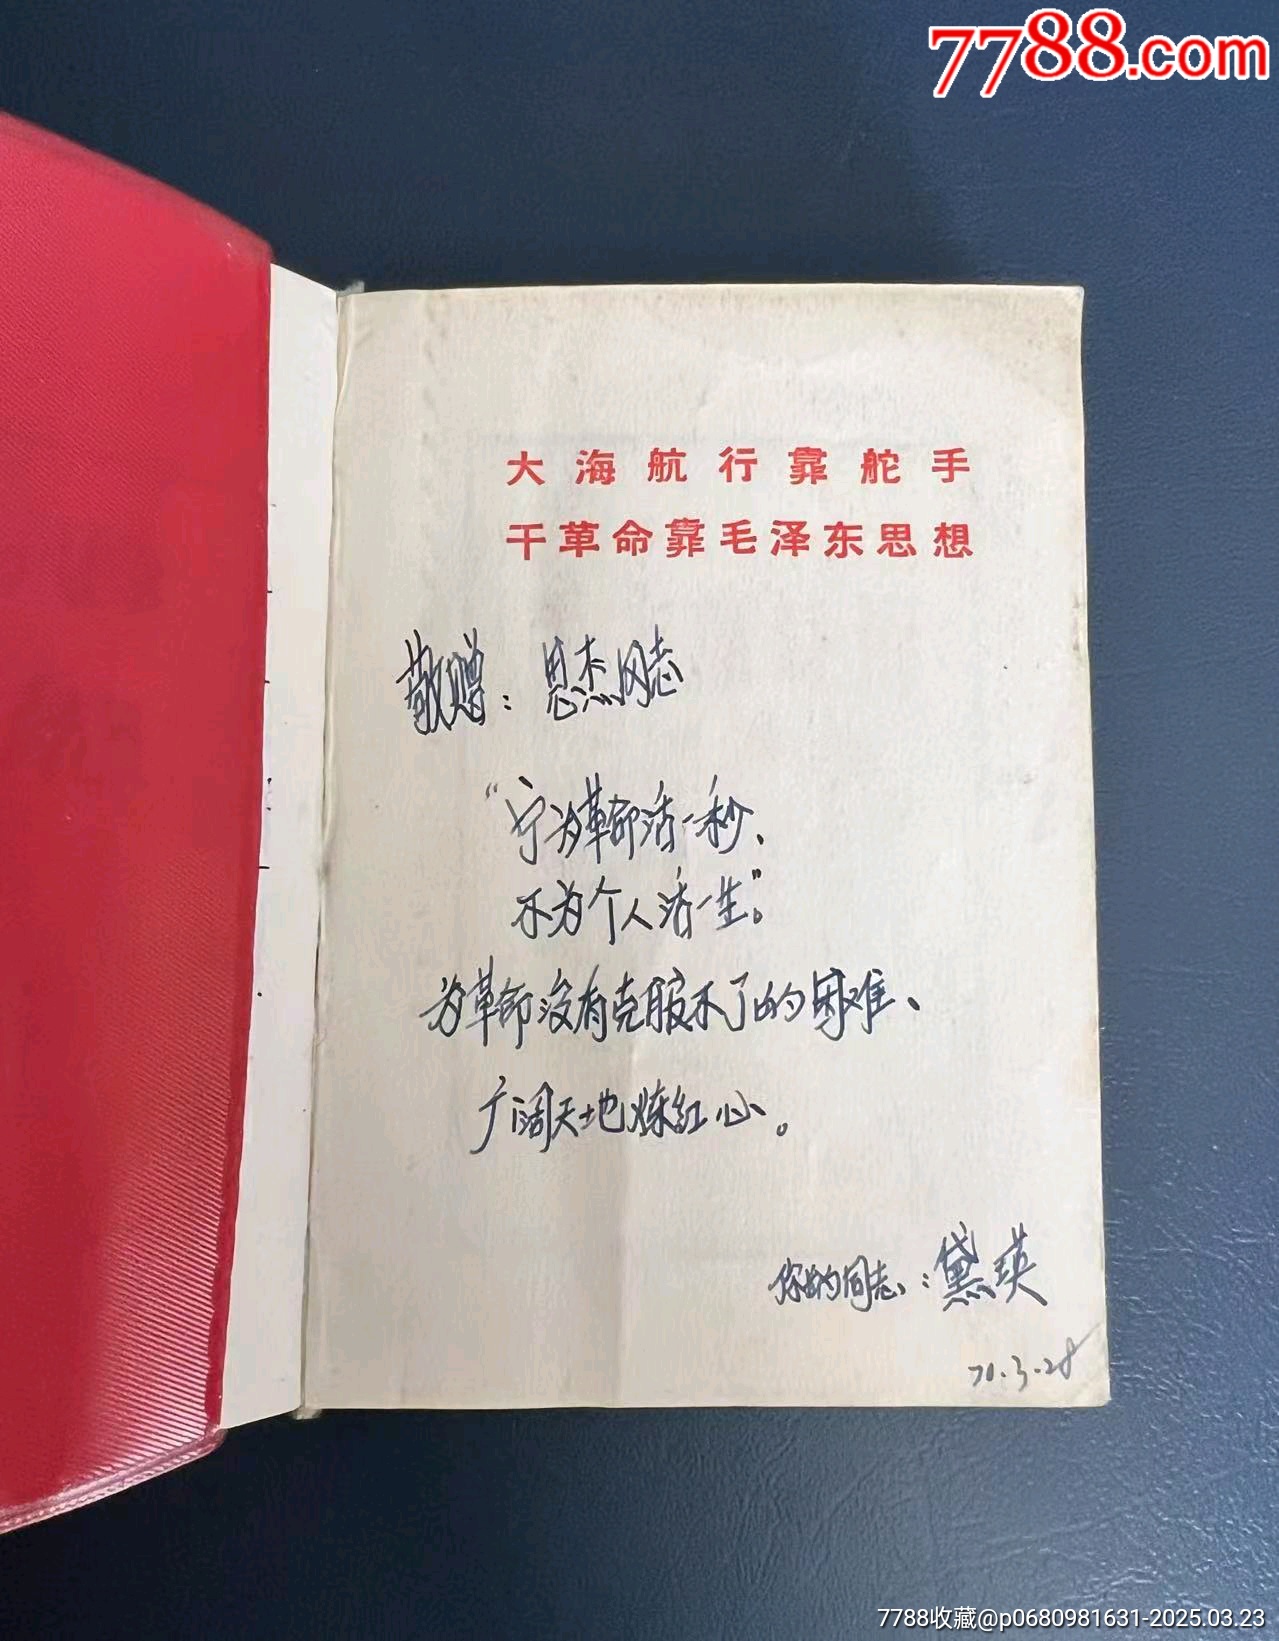 7788.com
大海航行靠舵手
干革命靠毛泽东思想
敬赠：思杰同志
“宁为革命活一秒、
不为个人活一生”。
为革命没有克服不了的困难、
广阔天地炼红心。
你的同志：黛瑛
70.3.28
7788收藏@p0680981631-2025.03.23